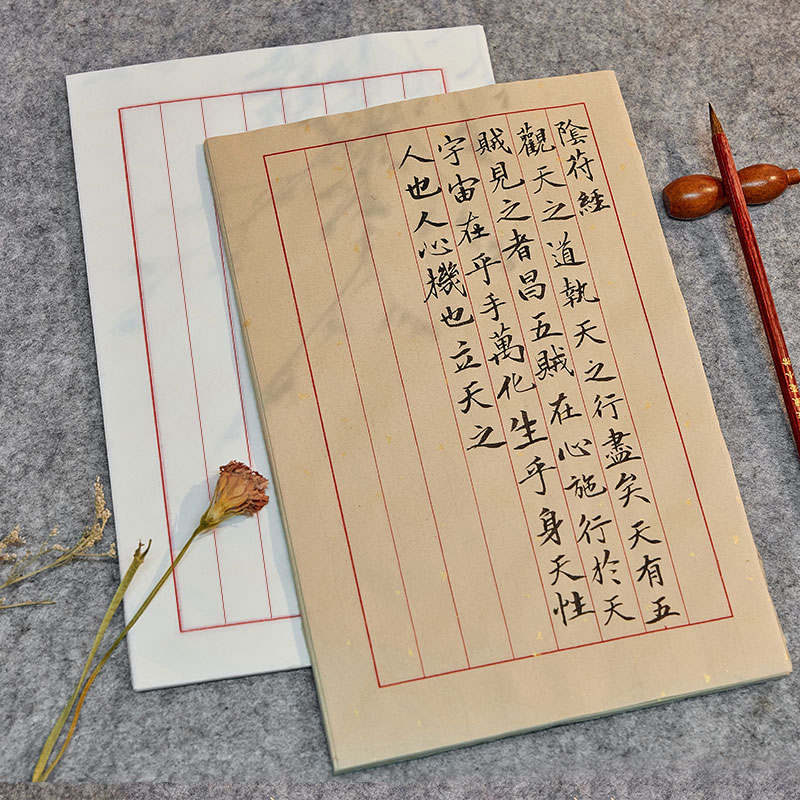 陰符經
觀天之道執天之行盡矣天有五
賊見之者昌五賊在心施行於天
宇宙在乎手萬化生乎身天性
人也人心機也立天之